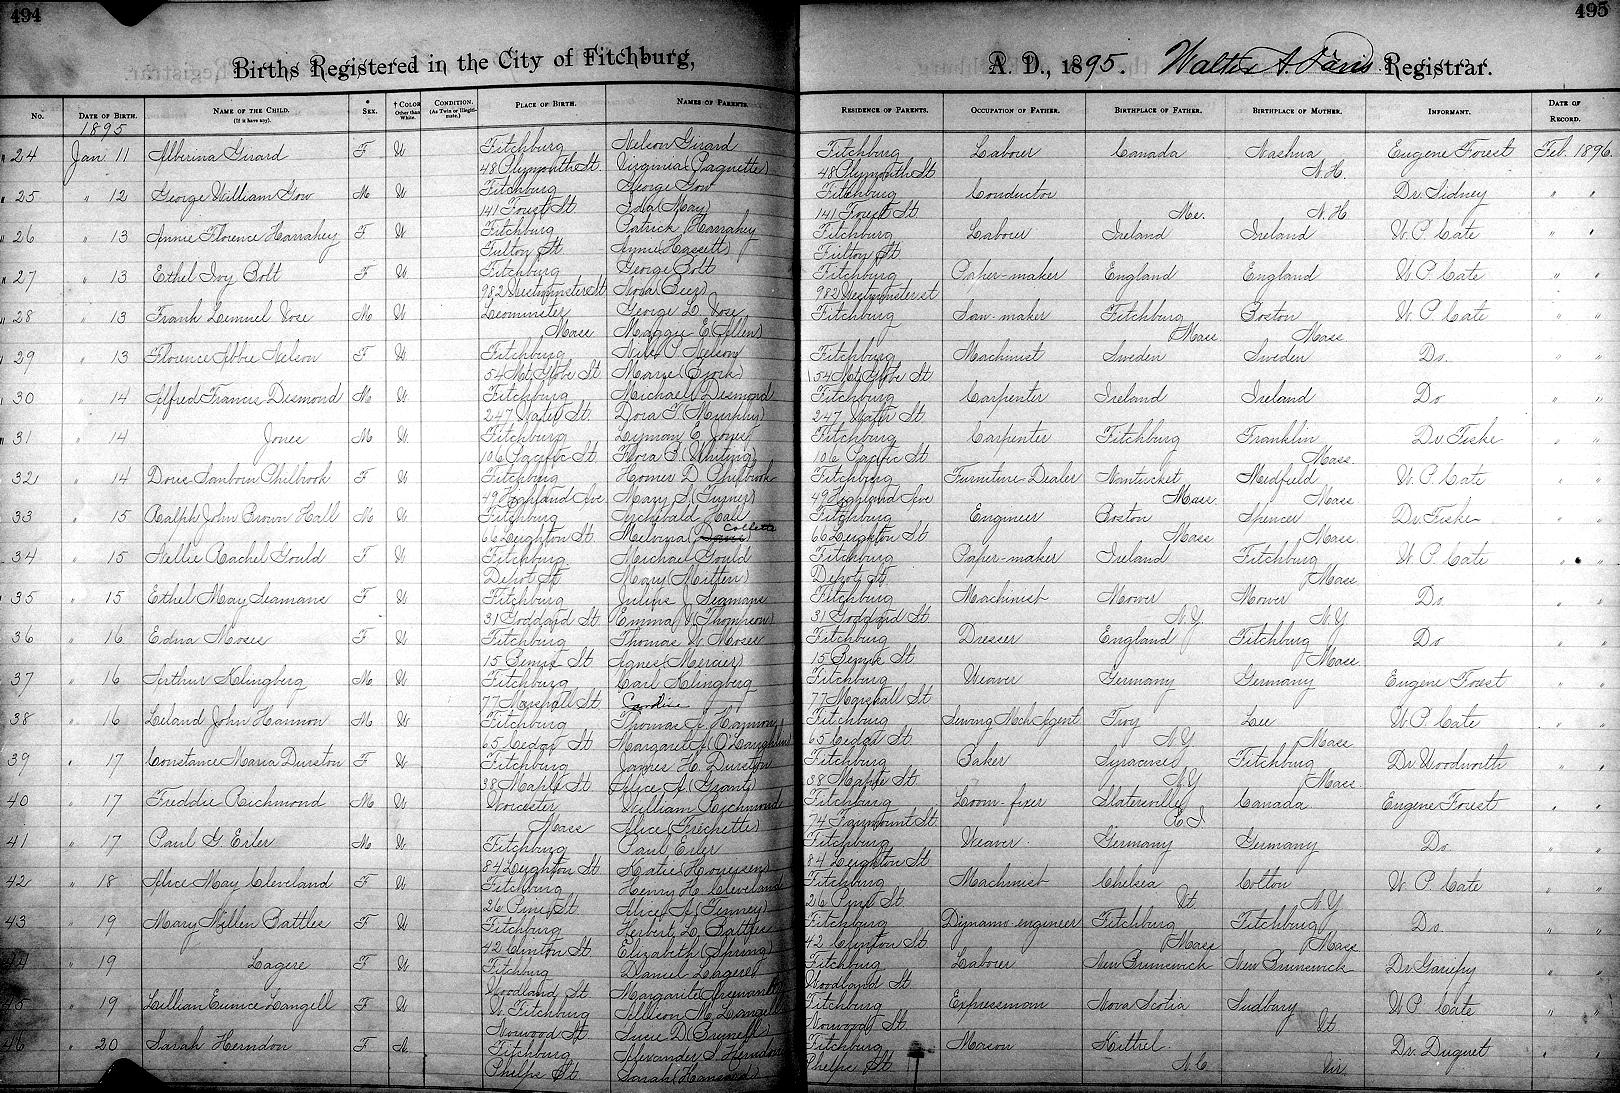 494
495
Births Registered in the City of Fitchburg, A. D., 1895. Walter A. Davis Registrar.
No. DATE OF BIRTH. NAME OF THE CHILD. (If it have any). SEX. † COLOR Other than White. CONDITION. (As Twin or Illegitimate.) PLACE OF BIRTH. NAMES OF PARENTS. RESIDENCE OF PARENTS. OCCUPATION OF FATHER. BIRTHPLACE OF FATHER. BIRTHPLACE OF MOTHER. INFORMANT. DATE OF RECORD.
1895
24 Jan 11 Alberina Girard F W Fitchburg Nelson Girard Fitchburg Labour Canada Nashua Eugene Forest Feb. 1896.
48 Plymouth St. Virginia (Paquette) 48 Plymouth St N.H.
25 " 12 George William Gow M W Fitchburg George Gow Fitchburg Conductor Dr Sidney " "
141 Forest St. Ida (May) 141 Forest St. Me. N.H
26 " 13 Annie Florence Harrahey F W Fitchburg Patrick Harrahey Fitchburg Labour Ireland Ireland W. P. Cate " "
Fulton St. Annie (Hassett) Fulton St.
27 " 13 Ethel Ivy Bolt F W Fitchburg George Bolt Fitchburg Paper-maker England England W P. Cate " "
982 Westminster St 982 Westminster st
28 " 13 Frank Lemuel Vose M W Leominster George L. Vose Fitchburg Saw-maker Fitchburg Boston W. P. Cate " "
Mass Maggie E (Allen) Mass Mass
29 " 13 Florence Abbie Nelson F W Fitchburg Nils P. Nelson Fitchburg Machinist Sweden Sweden Do. " "
54 Mt Globe St Marie (Bjork) 154 Mt Globe St
30 " 14 Alfred Francis Desmond M W Fitchburg Michael Desmond Fitchburg Carpenter Ireland Ireland Do " "
247 Water St. Dora F (Murphy) 247 Water St.
31 " 14 Jones M W Fitchburg Lyman E Jones Fitchburg Carpenter Fitchburg Franklin Dr Fiske " "
106 Pacific St. Flora B (Whiting) 106 Pacific St. Mass.
32 " 14 Doris Sanborn Philbrook F W Fitchburg Homer D. Philbrook Fitchburg Furniture-Dealer Nantucket Medfield W. P. Cate " "
49 Highland Ave. Mary S. (Turner) 49 Highland Ave Mass. Mass
33 " 15 Ralph John Brown Hall M W Fitchburg Archibald Hall Fitchburg Engineer Boston Spencer Dr. Fiske " "
66 Leighton St. Melvina (Collette) 66 Leighton St Mass Mass.
34 " 15 Nellie Rachel Gould F W Fitchburg Michael Gould Fitchburg Paper-maker Ireland Fitchburg W P. Cate " "
Depot St Mary (Mitten) Depot St Mass
35 " 15 Ethel May Seamans F W Fitchburg Julius J. Seamans Fitchburg Machinist Mower Mower Do. " "
31 Goddard St. Emma V (Thompson) 31 Goddard St N.Y. N.Y.
36 " 16 Edna Moses F W Fitchburg Thomas W Moses Fitchburg Dresser England Fitchburg Do " "
15 Bemis St. Agnes (Mercier) 15 Bemis St. Mass.
37 " 16 Arthur Klingberg M W Fitchburg Carl Klingberg Fitchburg Weaver Germany Germany Eugene Forest " "
77 Marshall St. Caroline 77 Marshall St
38 " 16 Leland John Hannon M W Fitchburg Thomas A Hannon Fitchburg Sewing Mch Agent Troy Lee W P. Cate " "
65 Cedar St. Margaret A (O'Laughlin) 65 Cedar St. N.Y. Mass.
39 " 17 Constance Maria Durston F W Fitchburg James H. Durston Fitchburg Baker Syracuse Fitchburg Dr Woodworth " "
38 Maple St. Alice A (Grant) 38 Maple St. N.Y Mass.
40 " 17 Freddie Richmond M W Worcester William Richmond Fitchburg Loom-fixer Slatersville Canada Eugene Forest " "
Mass Alice (Frechette) 74 Fairmount St. R I
41 " 17 Paul G. Erler M W Fitchburg Paul Erler Fitchburg Weaver Germany Germany Do " "
84 Leighton St Katie 84 Leighton St
42 " 18 Alice May Cleveland F W Fitchburg Henry H. Cleveland Fitchburg Machinist Chelsea Colton W P. Cate " "
26 Pine St. Alice A (Tenney) 26 Pine St Vt. N.Y
43 " 19 Mary Hellen Battles F W Fitchburg Herbert L. Battles Fitchburg Dynamo-engineer Fitchburg Fitchburg Do. " "
42 Clinton St. Elizabeth (Spring) 42 Clinton St. Mass Mass
44 " 19 Lagere F W Fitchburg Daniel Lagere Fitchburg Laborer New Brunswick New Brunswick Dr Gariepy " "
Woodland St. Margarite Woodland St.
45 " 19 Lillian Eunice Langill F W W. Fitchburg M. Langill Fitchburg Expressman Nova Scotia Sudbury W P. Cate " "
Norwood St. Susie D Norwood St. Vt
46 " 20 Sarah Herndon F Fitchburg Alexander S. Herndon Fitchburg Mason Kittrel Dr. Duguet " "
Phelps St. Sarah Phelps St N.C Vir.